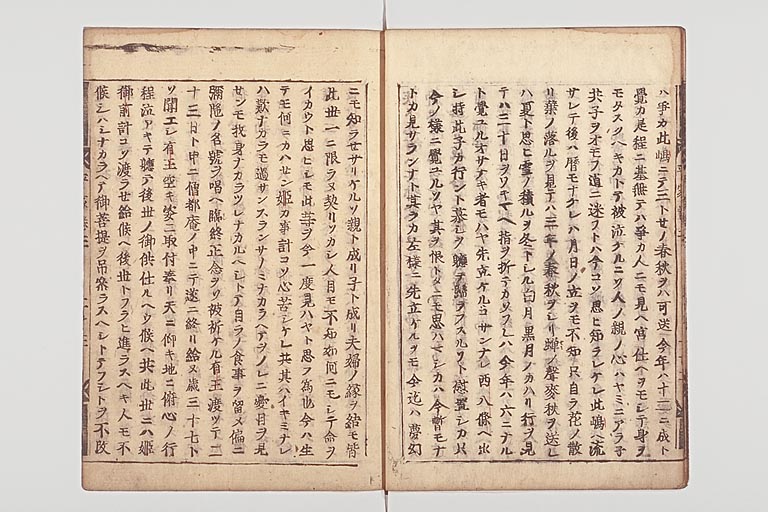 ハ乎カ此嶋ニテ三トセノ春秋ヲハ可送今年ハ十二ニ成ト
覺カ是程ニ墓無テハ爭カ人ニモ見ヘ宮仕ヘヲモシテ身ヲ
モタスクヘキカトテ被泣ケルニソ人ノ親ノ心ハヤミニアラ子
共子ヲオモフ道ニ迷フトハ今コソ思ヒ知ラレケレ此嶋ヘ流
サレテ後ハ暦モナケレハ月日ノ立ヲモ不知只自ラ花ノ散
リ葉ノ落ルヲ見テハ三年ノ春秋ヲシリ蝉ノ聲麥秋ヲ送レ
ハ夏ト思ヒ雪ノ積ルヲ冬トシル白月黒月ノカハリ行ヲ見
テハ三十日ヲワキマヘ指ヲ折テカソフレハ今年ハ六ニナル
ト覺ユルオサナキ者モハヤ先立ケルコサンナレ西八條ヘ出
シ時此子カ行ント慕シヲ軈テ歸ラフスルソト慰置シカ只
今ノ様ニ覺ユルソヤ其ヲ限トタニモ思ハマシカハ今暫モナ
トカ見サランナト其ラカ左様ニ先立ケルヲモ今迄ハ夢幻
ニモ知ラセサリケルソ親ト成リ子ト成リ夫婦ノ縁ヲ結モ皆
此世一ニ限ラヌ契リソカシ人目モ不知如何ニモシテ命ヲ
イカウト思ヒシモ此等ヲ今一度見ハヤト思フ為也今ハ生
テモ何ニカハセン姫カ事計コソ心苦シケレ共其ハイキミナレ
ハ歎ナカラモ過サンスランサノミナカラヘテヲノレニ憂目ヲ見
センモ我身ナカラツレナカルヘシトテ自ラノ食事ヲ留メ偏ニ
彌陀ノ名號ヲ唱ヘ臨終正念ヲソ被祈ケル有王渡ツテ二
十三日ト申ニ僧都庵ノ中ニテ遂ニ終リ給ヌ歳三十七ト
ソ聞エシ有王空キ姿ニ取付奉リ天ニ仰キ地ニ俯心ノ行
程泣アキテ軈テ後世ノ御供仕ルヘウ候ヘ共此世ニハ姫
御前計コソ渡ラセ給候ヘ後世トフラヒ進ラスヘキ人モ不
候シハシナカラヘテ御菩提ヲ吊參ラスヘシトテフシトヲ不改